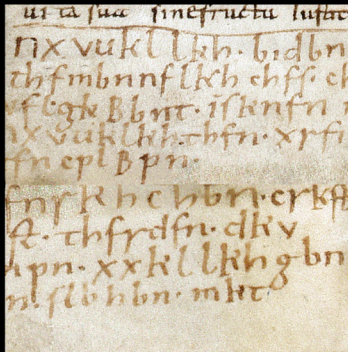 ui ta sua sinefructu
nxvukllkh. bidbn
thfmbnnflkh chfs. ch
fl. gkBbnt. iskenfn n
nxvukllkh. thfn. xrfi
tfn cplBpn.
fnrkhchbn. crkst
st. thfrdfn. dkv
mpn. xxkllkhgbn
n. slbhbn. mkt